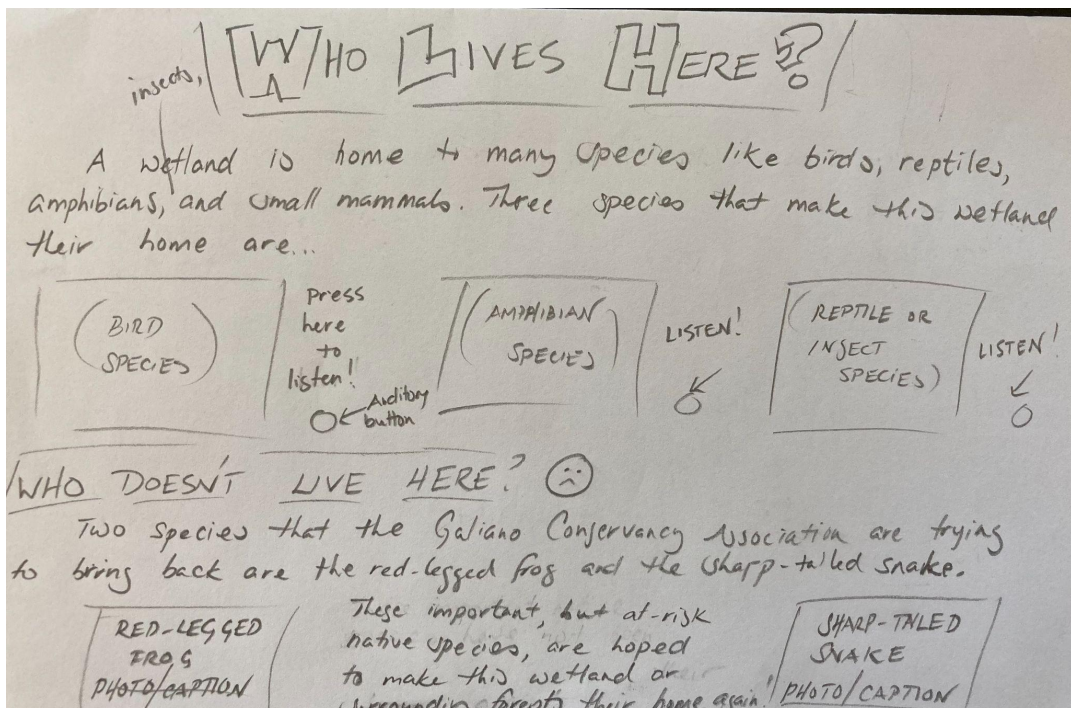 WHO LIVES HERE?
insects,
A wetland is home to many species like birds, reptiles,
amphibians, and small mammals. Three species that make this wetland
their home are...
(BIRD
SPECIES)
Press
here
to
listen!
Auditory
button
(AMPHIBIAN
SPECIES)
LISTEN!
(REPTILE OR
INSECT
SPECIES)
LISTEN!
WHO DOESN'T LIVE HERE?
Two species that the Galiano Conservancy Association are trying
to bring back are the red-legged frog and the sharp-tailed snake.
RED-LEGGED
FROG
PHOTO/CAPTION
These important, but at-risk
native species, are hoped
to make this wetland or
surrounding forests their home again!
SHARP-TAILED
SNAKE
PHOTO/CAPTION